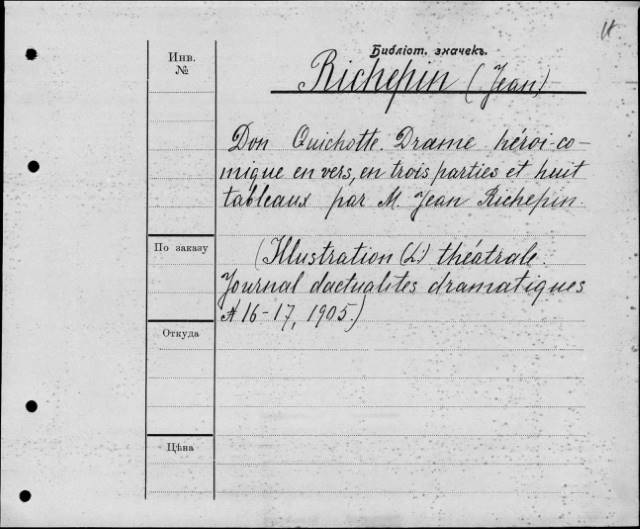 Библіот. значекъ.
Инв.
№
Richepin (Jean)
Don Quichotte. Drame héroi-co-
mique en vers, en trois parties et huit
tableaux par M. Jean Richepin
По заказу
(Illustration (L') théatrale.
Journal dactualités dramatiques
№ 16-17, 1905.)
Откуда
Цѣна